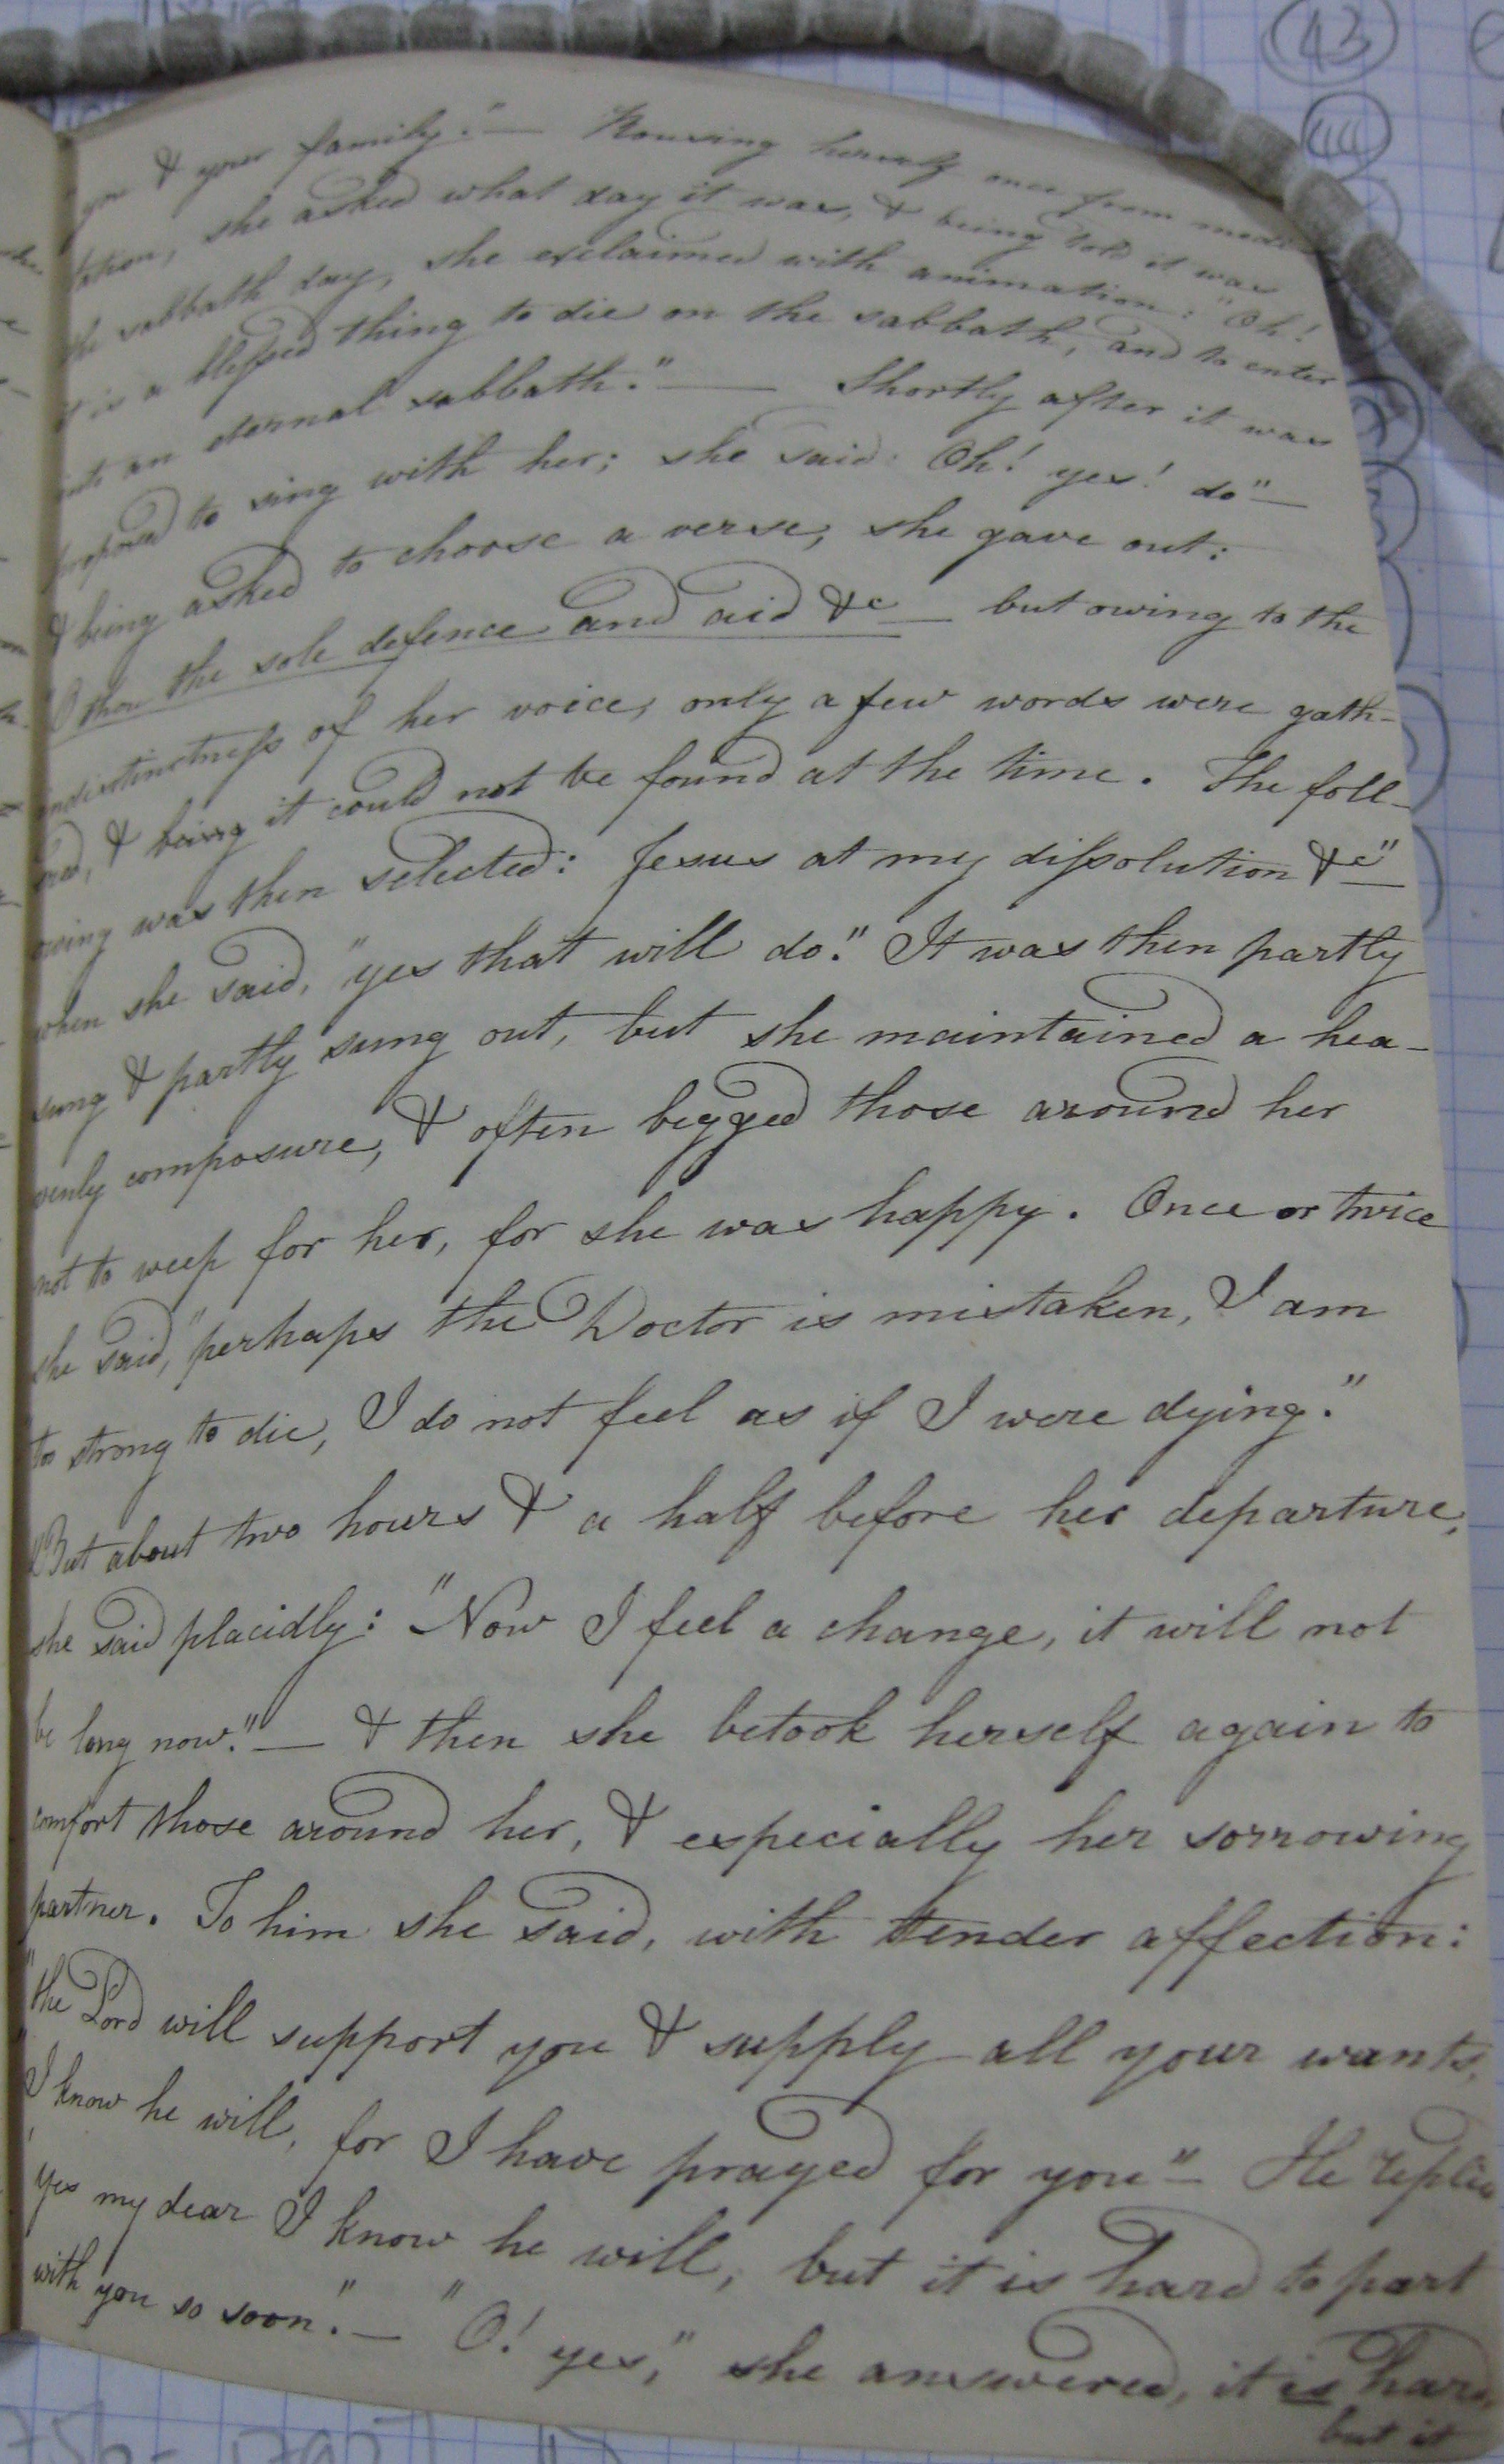 you & your family." — Rousing herself once from medi-
tation, she asked what day it was, & being told it was
the sabbath day, she exclaimed with animation: "Oh!
it is a blessed thing to die on the sabbath, and to enter
into an eternal sabbath." — Shortly after it was
proposed to sing with her; she said: Oh! yes! do" —
& being asked to choose a verse, she gave out:
O thou the sole defence and aid &c — but owing to the
indistinctness of her voice, only a few words were gath-
ered, & being it could not be found at the time. The foll-
owing was then selected: Jesus at my dissolution &c" —
when she said, "yes that will do." It was then partly
sung & partly sung out, but she maintained a hea-
venly composure, & often begged those around her
not to weep for her, for she was happy. Once or twice
she said, "perhaps the Doctor is mistaken, I am
too strong to die, I do not feel as if I were dying."
But about two hours & a half before her departure,
she said placidly: "Now I feel a change, it will not
be long now." — & then she betook herself again to
comfort those around her, & especially her sorrowing
partner. To him she said, with tender affection:
"the Lord will support you & supply all your wants,
I know he will, for I have prayed for you" — He replied
"yes my dear I know he will, but it is hard to part
with you so soon." — "O! yes," she answered, it is hard,
but it
43
44